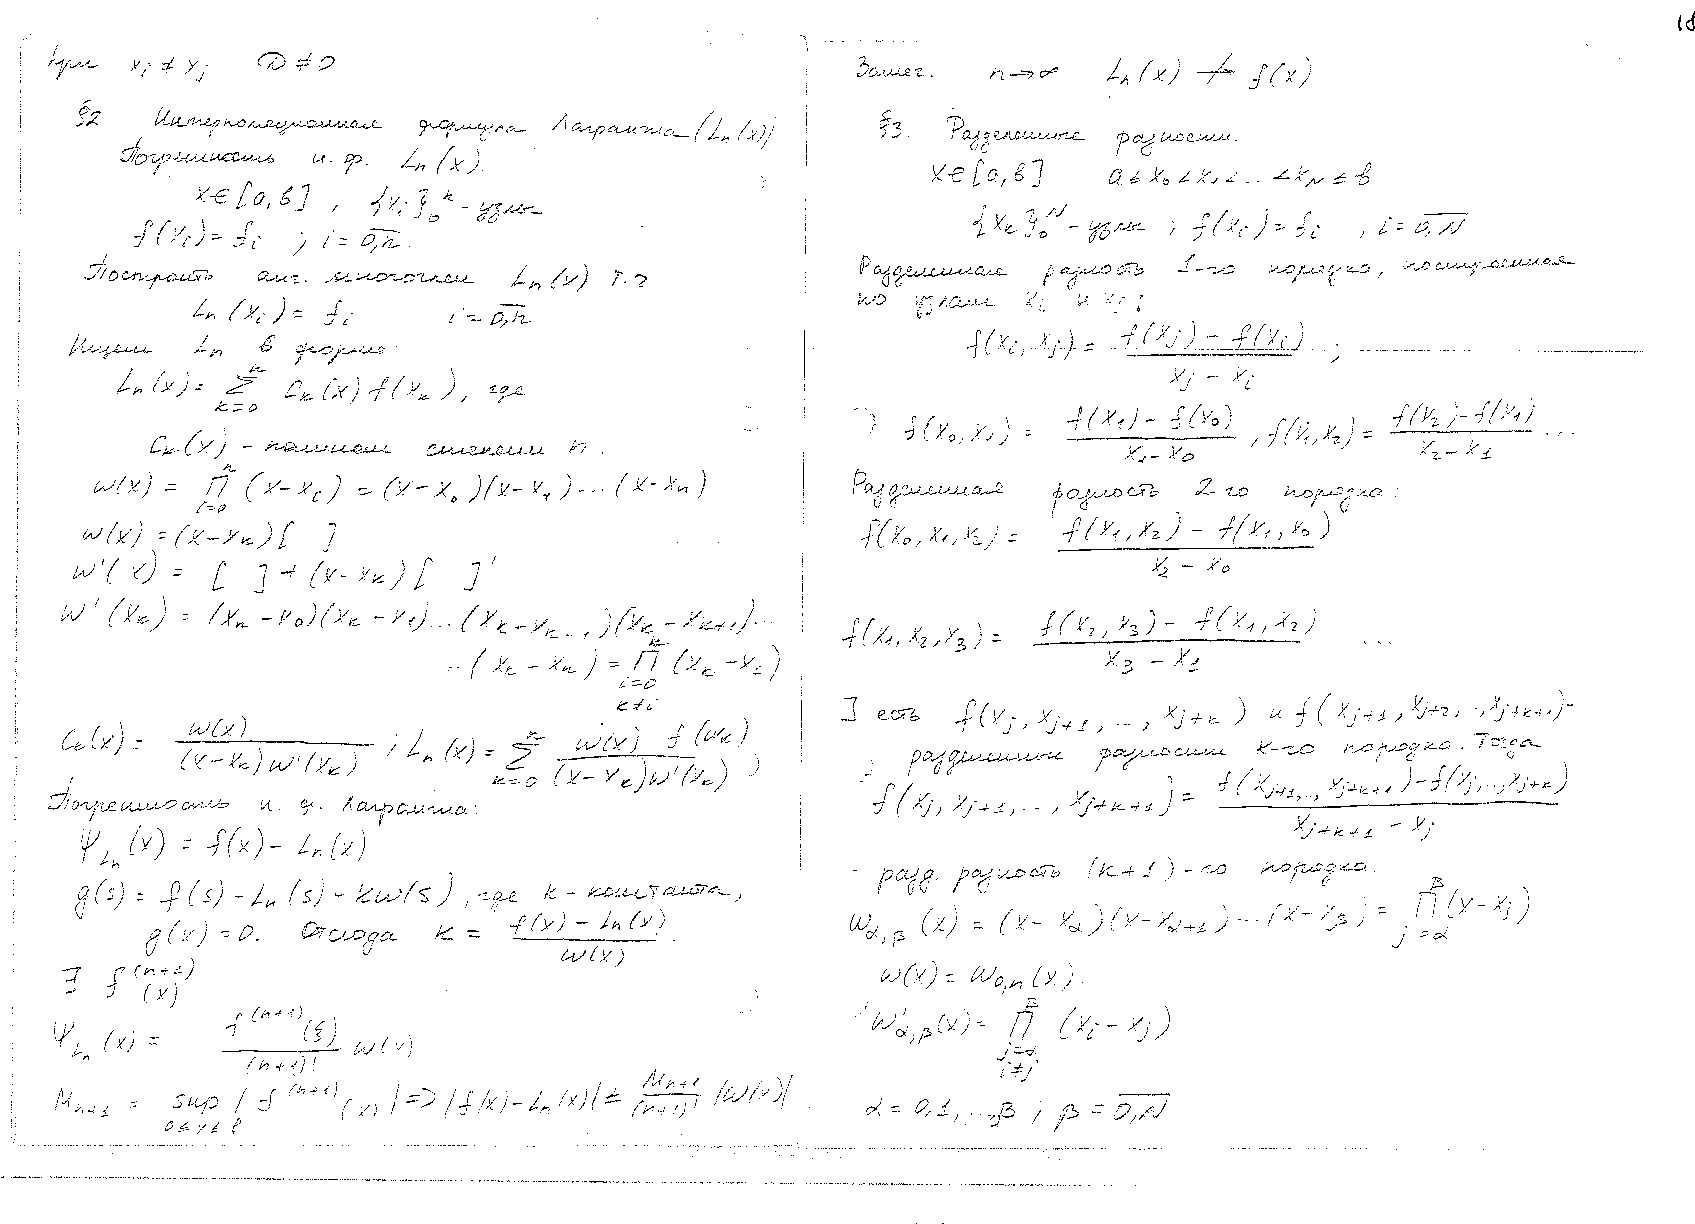 18
при x_i ≠ x_j D ≠ 0
§2 Интерполяционная формула Лагранжа (L_n(x))
Погрешность и. ф. L_n(x).
x∈[a,b], {x_i}_0^n - узлы
f(x_i) = f_i ; i = \overline{0,n}.
Построить алг. многочлен L_n(x) т.ч.
L_n(x_i) = f_i i = \overline{0,n}
Ищем L_n в форме
L_n(x) = \sum_{k=0}^{n} C_k(x) f(x_k), где
C_k(x) - полином степени n.
ω(x) = \prod_{i=0}^{n} (x-x_i) = (x-x_0)(x-x_1)...(x-x_n)
ω(x) = (x-x_k)[ ]
ω'(x) = [ ] + (x-x_k)[ ]'
ω'(x_k) = (x_k-x_0)(x_k-x_1)...(x_k-x_{k-1})(x_k-x_{k+1})...
...(x_k-x_n) = \prod_{i=0, k≠i}^{n} (x_k-x_i)
C_k(x) = \frac{ω(x)}{(x-x_k)ω'(x_k)} ; L_n(x) = \sum_{k=0}^{n} \frac{ω(x) f(x_k)}{(x-x_k)ω'(x_k)}
Погрешность и. ф. Лагранжа:
Ψ_{L_n}(x) = f(x) - L_n(x)
g(s) = f(s) - L_n(s) - kω(s), где k - константа,
g(x) = 0. Отсюда k = \frac{f(x) - L_n(x)}{ω(x)}
∃ f^{(n+1)}(x)
Ψ_{L_n}(x) = \frac{f^{(n+1)}(ξ)}{(n+1)!} ω(x)
M_{n+1} = \sup_{a≤x≤b} |f^{(n+1)}(x)| => |f(x) - L_n(x)| ≤ \frac{M_{n+1}}{(n+1)!} |ω(x)|
Замеч. n→∞ L_n(x) ↛ f(x)
§3. Разделенные разности.
x∈[a,b] a≤x_0<x_1<...<x_N≤b
{x_k}_0^N - узлы ; f(x_i) = f_i , i = \overline{0,N}
Разделенная разность 1-го порядка, построенная
по узлам x_i и x_j:
f(x_i,x_j) = \frac{f(x_j) - f(x_i)}{x_j - x_i} ;
f(x_0,x_1) = \frac{f(x_1) - f(x_0)}{x_1-x_0}, f(x_1,x_2) = \frac{f(x_2)-f(x_1)}{x_2-x_1} ...
Разделенная разность 2-го порядка:
f(x_0,x_1,x_2) = \frac{f(x_1,x_2) - f(x_1,x_0)}{x_2 - x_0}
f(x_1,x_2,x_3) = \frac{f(x_2,x_3) - f(x_1,x_2)}{x_3 - x_1} ...
] есть f(x_j,x_{j+1},...,x_{j+k}) и f(x_{j+1},x_{j+2},..,x_{j+k+1})-
разделенные разности k-го порядка. Тогда
f(x_j,x_{j+1},...,x_{j+k+1}) = \frac{f(x_{j+1},..,x_{j+k+1})-f(x_j,..,x_{j+k})}{x_{j+k+1} - x_j}
- разд. разность (k+1)-го порядка.
ω_{α,β}(x) = (x-x_α)(x-x_{α+1})...(x-x_β) = \prod_{j=α}^{β}(x-x_j)
ω(x) = ω_{0,n}(x).
ω'_{α,β}(x) = \prod_{j=α, i≠j}^{β} (x_i-x_j)
α = 0,1,...,β ; β = \overline{0,N}